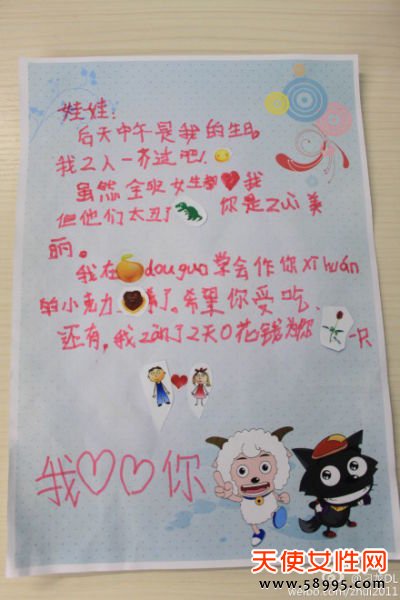 娃娃:
后天中午是我的生日。
我2人一齐过吧!
虽然全班女生都我
但他们太丑了 你是zuì美
丽。
我在douguo学会作你xǐhuán
的小克力 了。希望你爱吃
还有,我zǎn了2天0花钱为你 一只
我♡♡你
天使女性网
www.58995.com
weibo.com/zhui2011